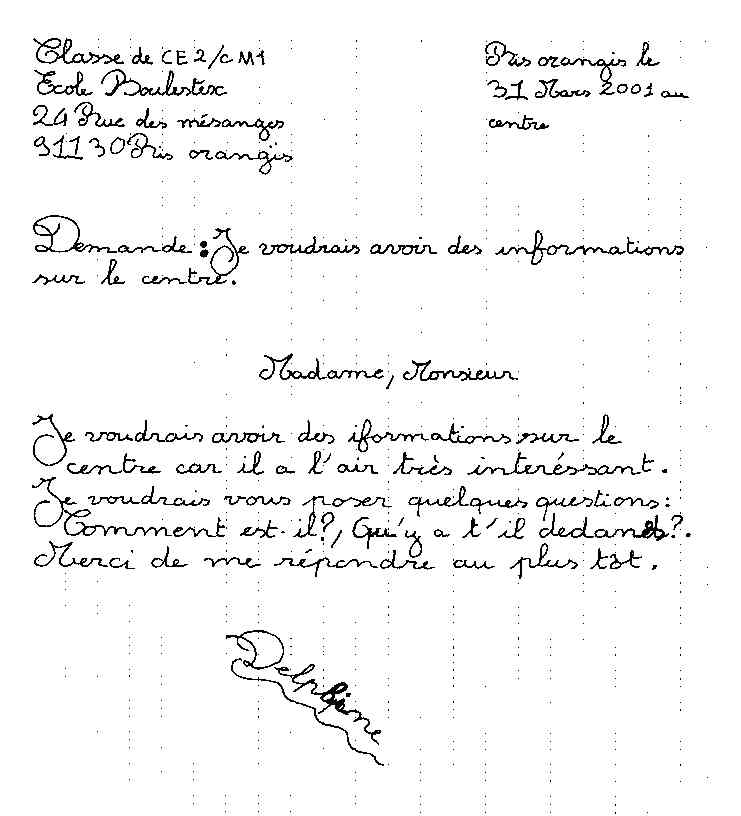 Classe de CE2/CM1
Ecole Boulestex
24 Rue des mésanges
91130 Ris orangis
Ris orangis le
31 Mars 2001 au
centre
Demande : Je voudrais avoir des informations
sur le centre.
Madame, Monsieur
Je voudrais avoir des iformations sur le
centre car il a l'air très interéssant.
Je voudrais vous poser quelques questions :
Comment est-il?, Qu'y a t'il dedans?.
Merci de me répondre au plus tôt.
Delphine